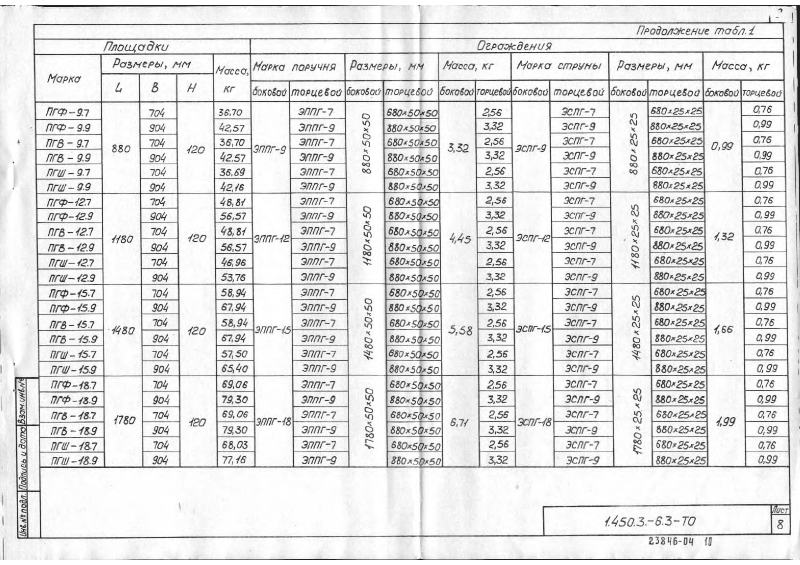 Продолжение табл.1
Площадки Ограждения
Марка Размеры, мм Масса, кг Марка поручня Размеры, мм Масса, кг Марка струны Размеры, мм Масса, кг
L В Н боковой торцевой боковой торцевой боковой торцевой боковой торцевой боковой торцевой боковой торцевой
ПГФ-9.7 880 704 120 36,70 ЭППГ-9 ЭППГ-7 880×50×50 680×50×50 3,32 2,56 ЭСПГ-9 ЭСПГ-7 880×25×25 680×25×25 0,99 0,76
ПГФ-9.9 904 42,57 ЭППГ-9 880×50×50 3,32 ЭСПГ-9 880×25×25 0,99
ПГВ-9.7 704 36,70 ЭППГ-7 680×50×50 2,56 ЭСПГ-7 680×25×25 0,76
ПГВ-9.9 904 42,57 ЭППГ-9 880×50×50 3,32 ЭСПГ-9 880×25×25 0,99
ПГШ-9.7 704 36,69 ЭППГ-7 680×50×50 2,56 ЭСПГ-7 680×25×25 0,76
ПГШ-9.9 904 42,16 ЭППГ-9 880×50×50 3,32 ЭСПГ-9 880×25×25 0,99
ПГФ-12.7 1180 704 120 48,81 ЭППГ-12 ЭППГ-7 1180×50×50 680×50×50 4,45 2,56 ЭСПГ-12 ЭСПГ-7 1180×25×25 680×25×25 1,32 0,76
ПГФ-12.9 904 56,57 ЭППГ-9 880×50×50 3,32 ЭСПГ-9 880×25×25 0,99
ПГВ-12.7 704 48,81 ЭППГ-7 680×50×50 2,56 ЭСПГ-7 680×25×25 0,76
ПГВ-12.9 904 56,57 ЭППГ-9 880×50×50 3,32 ЭСПГ-9 880×25×25 0,99
ПГШ-12.7 704 46,96 ЭППГ-7 680×50×50 2,56 ЭСПГ-7 680×25×25 0,76
ПГШ-12.9 904 53,76 ЭППГ-9 880×50×50 3,32 ЭСПГ-9 880×25×25 0,99
ПГФ-15.7 1480 704 120 58,94 ЭППГ-15 ЭППГ-7 1480×50×50 680×50×50 5,58 2,56 ЭСПГ-15 ЭСПГ-7 1480×25×25 680×25×25 1,66 0,76
ПГФ-15.9 904 67,94 ЭППГ-9 880×50×50 3,32 ЭСПГ-9 880×25×25 0,99
ПГВ-15.7 704 58,94 ЭППГ-7 680×50×50 2,56 ЭСПГ-7 680×25×25 0,76
ПГВ-15.9 904 67,94 ЭППГ-9 880×50×50 3,32 ЭСПГ-9 880×25×25 0,99
ПГШ-15.7 704 57,50 ЭППГ-7 680×50×50 2,56 ЭСПГ-7 680×25×25 0,76
ПГШ-15.9 904 65,40 ЭППГ-9 880×50×50 3,32 ЭСПГ-9 880×25×25 0,99
ПГФ-18.7 1780 704 120 69,06 ЭППГ-18 ЭППГ-7 1780×50×50 680×50×50 6,71 2,56 ЭСПГ-18 ЭСПГ-7 1780×25×25 680×25×25 1,99 0,76
ПГФ-18.9 904 79,30 ЭППГ-9 880×50×50 3,32 ЭСПГ-9 880×25×25 0,99
ПГВ-18.7 704 69,06 ЭППГ-7 680×50×50 2,56 ЭСПГ-7 680×25×25 0,76
ПГВ-18.9 904 79,30 ЭППГ-9 880×50×50 3,32 ЭСПГ-9 880×25×25 0,99
ПГШ-18.7 704 68,03 ЭППГ-7 680×50×50 2,56 ЭСПГ-7 680×25×25 0,76
ПГШ-18.9 904 77,16 ЭППГ-9 880×50×50 3,32 ЭСПГ-9 880×25×25 0,99
Инв.№ подл. Подпись и дата Взам.инв.№
1.450.3-6.3-ТО
Лист
8
23846-04 10